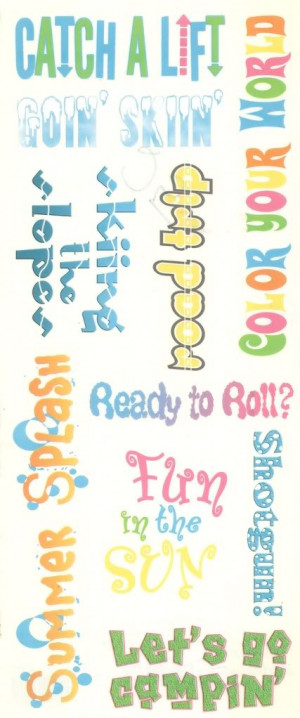 CATCH A LIFT
GOIN' SKIIN'
COLOR YOUR WORLD
skiing
the
slopes
road trip
Ready to Roll?
Summer Splash
Fun
in the
SUN
Shotgun!
Let's go
campin'